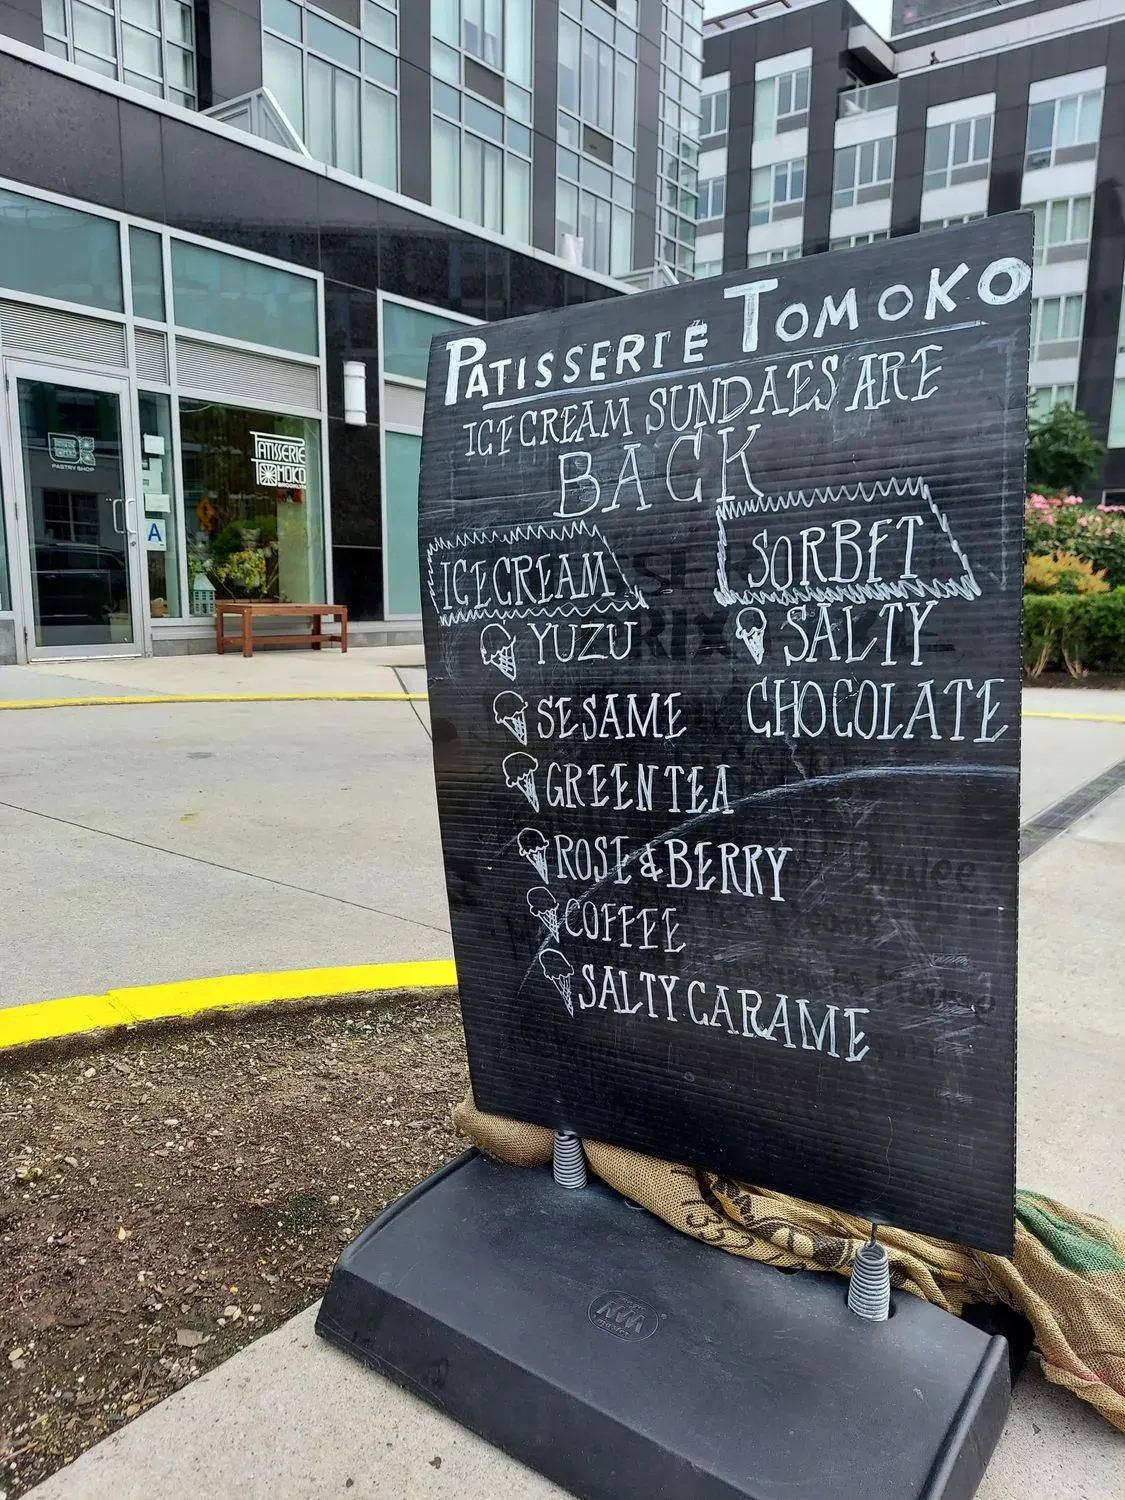 PATISSERIE TOMOKO
ICE CREAM SUNDAES ARE
BACK
ICE CREAM
YUZU
SESAME
GREEN TEA
ROSE & BERRY
COFFEE
SALTY CARAME
SORBET
SALTY
CHOCOLATE
PASTRY SHOP
A
PATISSERIE
TOMOKO
BROOKLYN